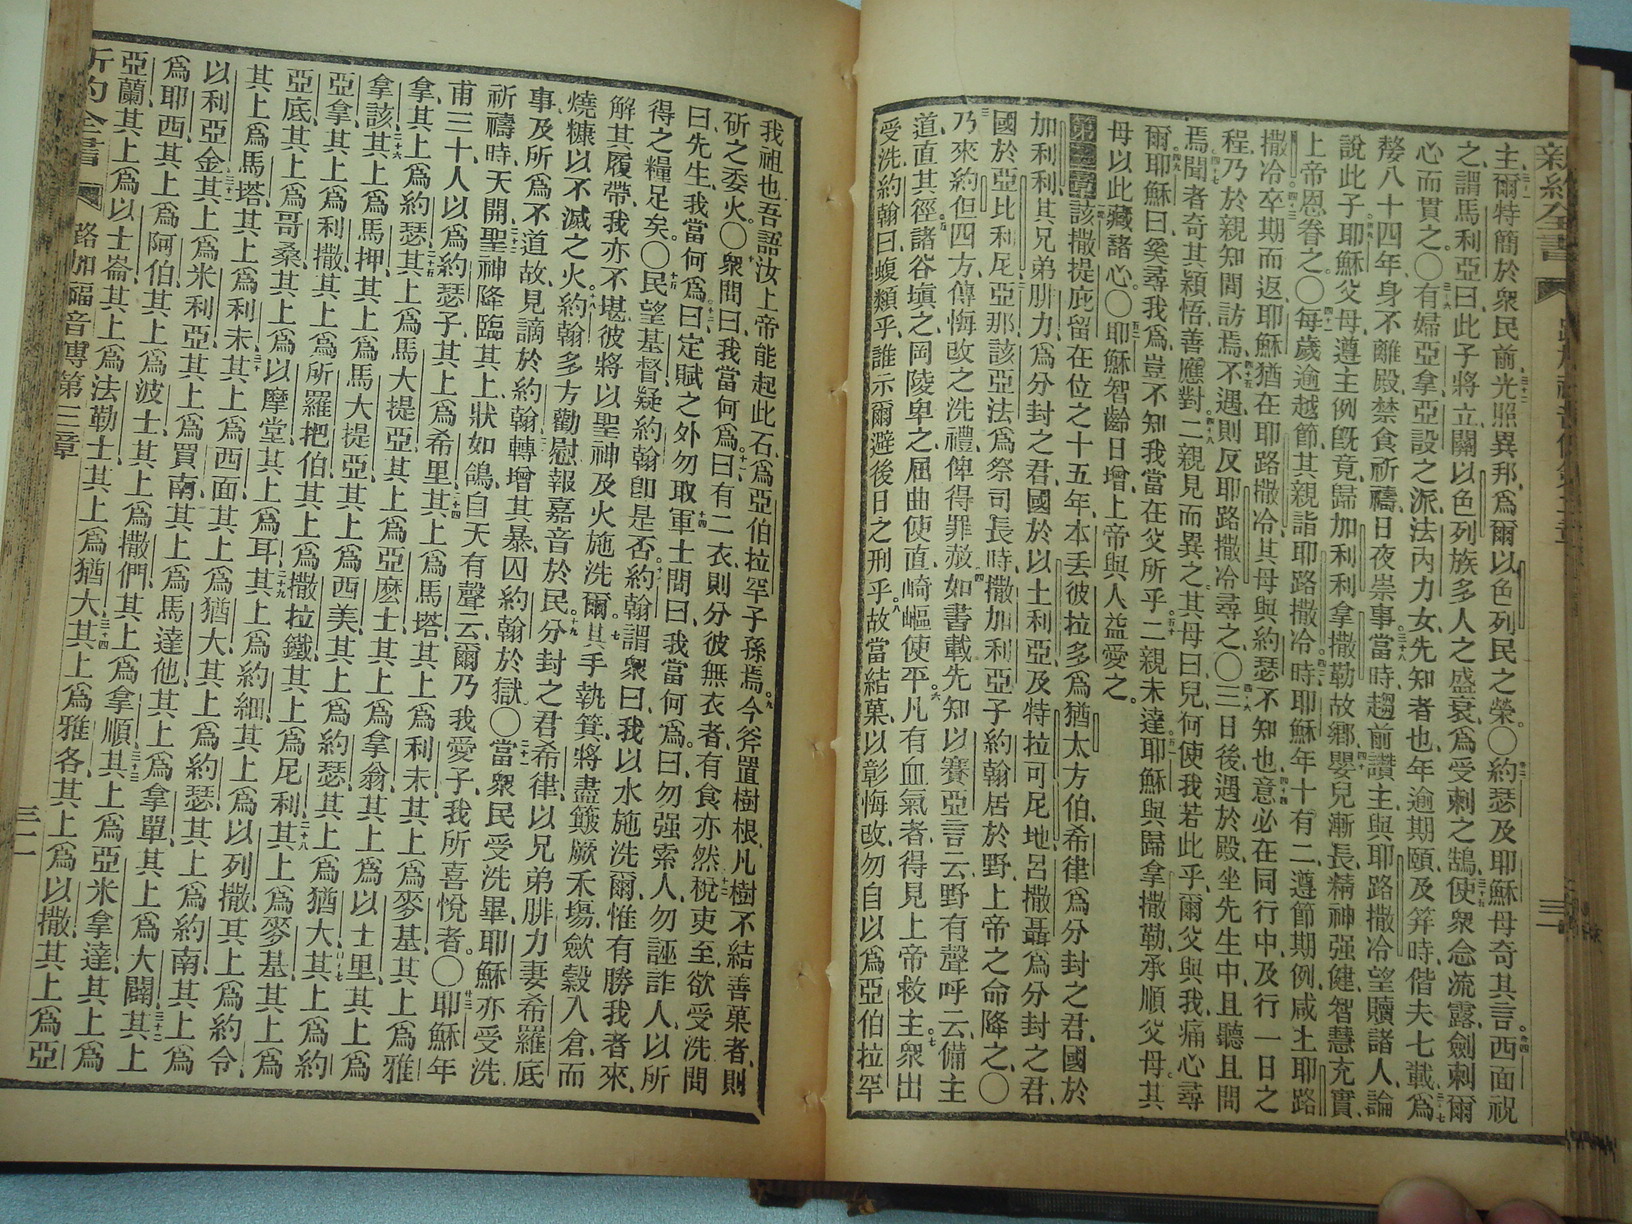 新約全書 路加福音傳第二章 三十一
主、爾特簡於衆民前、光照異邦、爲爾以色列民之榮。〇約瑟及耶穌母奇其言。西面祝
之、謂馬利亞曰、此子將立、關以色列族多人之盛衰、爲受刺之鵠、使衆念流露、劍刺爾
心而貫之。〇有婦亞拿、亞設之派、法內力女、先知者也、年逾期頤、及笄時、偕夫七載、爲
嫠八十四年、身不離殿、禁食祈禱、日夜崇事、當時趨前讚主、與耶路撒冷望贖諸人、論
說此子、耶穌父母遵主例旣竟、歸加利利拿撒勒故鄉、嬰兒漸長、精神强健、智慧充實、
上帝恩眷之。〇每歲逾越節、其親詣耶路撒冷、時耶穌年十有二、遵節期例、咸上耶路
撒冷、卒期而返、耶穌猶在耶路撒冷、其母與約瑟不知也、意必在同行中、及行一日之
程、乃於親知間訪焉、不遇、則反耶路撒冷尋之、〇三日後、遇於殿、坐先生中、且聽且問
焉、聞者奇其穎悟善應對、二親見而異之、其母曰、兒何使我若此乎、爾父與我、痛心尋
爾、耶穌曰、奚尋我爲、豈不知我當在父所乎、二親未達、耶穌與歸拿撒勒、承順父母、其
母以此藏諸心、〇耶穌智齡日增、上帝與人益愛之。
第三章 該撒提庇留在位之十五年、本丟彼拉多爲猶太方伯、希律爲分封之君、國於
加利利、其兄弟腓力、爲分封之君、國於以土利亞、及特拉可尼地、呂撒聶爲分封之君、
國於亞比利尼、亞那該亞法爲祭司長時、撒加利亞子約翰居於野、上帝之命降之、〇
乃來約但四方、傳悔改之洗禮、俾得罪赦、如書載先知以賽亞言云、野有聲呼云、備主
道、直其徑、諸谷塡之、岡陵卑之、屈曲使直、崎嶇使平、凡有血氣者、得見上帝救主。衆出
受洗、約翰曰、蝮類乎、誰示爾避後日之刑乎、故當結菓、以彰悔改、勿自以爲亞伯拉罕
我祖也、吾語汝、上帝能起此石、爲亞伯拉罕子孫焉。今斧置樹根、凡樹不結善菓者、則
斫之委火。〇衆問曰、我當何爲、曰、有二衣、則分彼無衣者、有食亦然、稅吏至、欲受洗、問
曰、先生、我當何爲、曰、定賦之外勿取、軍士問曰、我當何爲、曰、勿强索人、勿誣詐人、以所
得之糧足矣。〇民望基督、疑約翰卽是否、約翰謂衆曰、我以水施洗爾、惟有勝我者來、
解其履帶、我亦不堪、彼將以聖神及火施洗爾、其手執箕、將盡簸厥禾塲、斂穀入倉、而
燒糠以不滅之火、約翰多方勸慰、報嘉音於民。分封之君希律、以兄弟腓力妻希羅底
事、及所爲不道故、見謫於約翰、轉增其暴、囚約翰於獄、〇當衆民受洗畢、耶穌亦受洗
祈禱時、天開、聖神降臨其上、狀如鴿、自天有聲云、爾乃我愛子、我所喜悅者。〇耶穌年
甫三十、人以爲約瑟子、其上爲希里、其上爲馬塔、其上爲利未、其上爲麥基、其上爲雅
拿、其上爲約瑟、其上爲馬大提亞、其上爲亞麽士、其上爲拿翁、其上爲以士里、其上爲
拿該、其上爲馬押、其上爲馬大提亞、其上爲西美、其上爲約瑟、其上爲猶大、其上爲約
亞拿、其上爲利撒、其上爲所羅把伯、其上爲撒拉鐵、其上爲尼利、其上爲麥基、其上爲
亞底、其上爲哥桑、其上爲以摩堂、其上爲耳、其上爲約細、其上爲以列撒、其上爲約令、
其上爲馬塔、其上爲利未、其上爲西面、其上爲猶大、其上爲約瑟、其上爲約南、其上爲
以利亞金、其上爲米利亞、其上爲買南、其上爲馬達他、其上爲拿單、其上爲大闢、其上
爲耶西、其上爲阿伯、其上爲波士、其上爲撒們、其上爲拿順、其上爲亞米拿達、其上爲
亞蘭、其上爲以士崙、其上爲法勒士、其上爲猶大、其上爲雅各、其上爲以撒、其上爲亞
新約全書 路加福音傳第三章 三十一